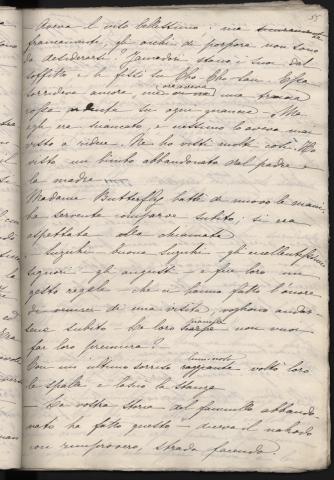 55
Aveva il viso bellissimo, ma
francamente, gli occhi di porpora non sono
da desiderarsi. Yamadori stava i suoi dal
soffitto e li fissò su Cho-Cho-San. Essa
sorrideva ancora, ma aveva una traccia
rossa su ogni guancia. Ma
egli era stancato, e nessuno l'aveva mai
visto a ridere. Ne ho visti molti così. Ho
visto un bimbo abbandonato dal padre e
la madre
Madame Butterfly battè di nuovo le mani,
la servente comparve subito; si era
aspettata alla chiamata
Suzuki buona Suzuki gli eccellentissimi
signori - gli augusti - e fece loro un
gesto regale - che ci hanno fatto l'onore
di una visita, vogliono andar
sene subito. Le loro scarpe non vuoi
far loro premura?
Con un ultimo sorriso luminoso voltò loro
le spalle e lasciò la stanza
- La vostra storia del fanciullo abbando
nato ha fatto questo - diceva il nakodo
con rimprovero, strada facendo.